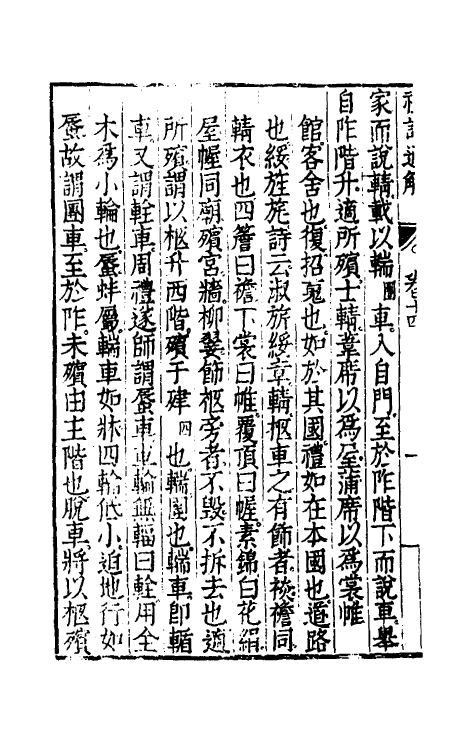 禮記通解 卷十四 一
家而說輤載以輲團車入自門至於阼階下而說車舉
自阼階升適所殯士輤葦席以為屋蒲席以為裳帷
館客舍也復招䰟也如於其國禮如在本國也道路
也綏旌旄詩云淑旂綏章輤柩車之有飾者裧襜同
輤衣也四簷曰襜下裳曰帷覆頂曰幄素錦白花絹
屋幄同廟殯宮牆柳翣飾柩旁者不毀不拆去也適
所殯謂以柩升西階殯于肂四也輲團也輲車即輴
車又謂輇車周禮遂師謂蜃車車輪無輻曰輇用全
木為小輪也蜃蚌屬輲車如牀四輪低小迫地行如
蜃故謂團車至於阼未殯由主階也脫車將以柩殯